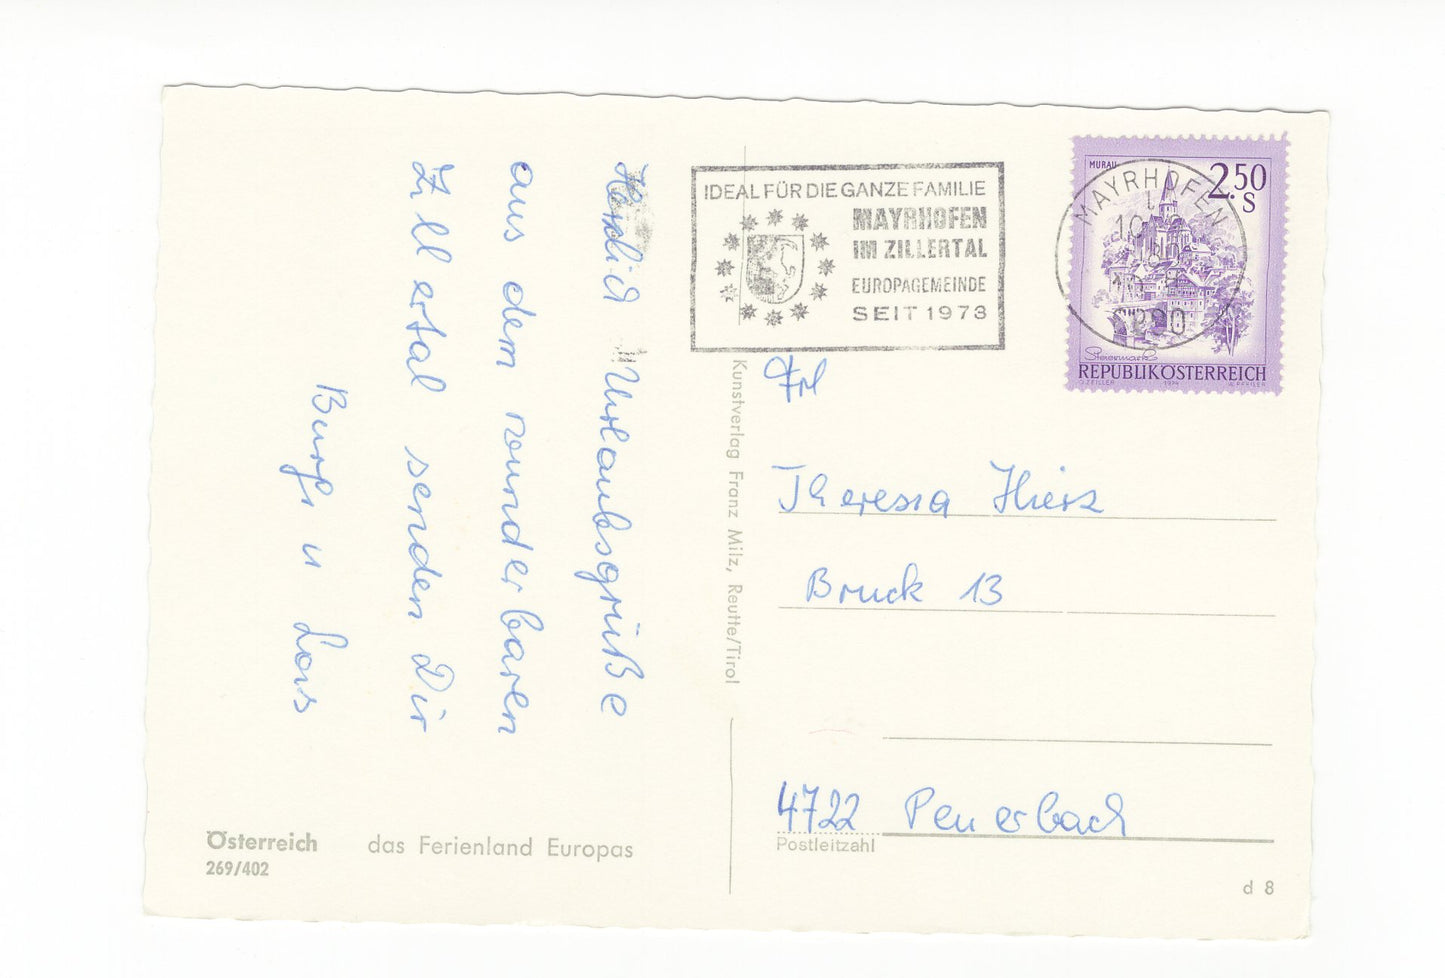 Herzlich Urlaubsgrüße
aus dem wunderbaren
Zillertal senden Dir
u
IDEAL FÜR DIE GANZE FAMILIE
MAYRHOFEN
IM ZILLERTAL
EUROPAGEMEINDE
SEIT 1973
MURAU
2.50
S
Steiermark
REPUBLIK ÖSTERREICH
O. ZEILLER 1974 A. PFEILER
MAYRHOFEN
10
6290
Frl
Theresia Hierz
Bruck 13
4722 Peuerbach
Postleitzahl
Kunstverlag Franz Milz, Reutte/Tirol
Österreich das Ferienland Europas
269/402
d 8